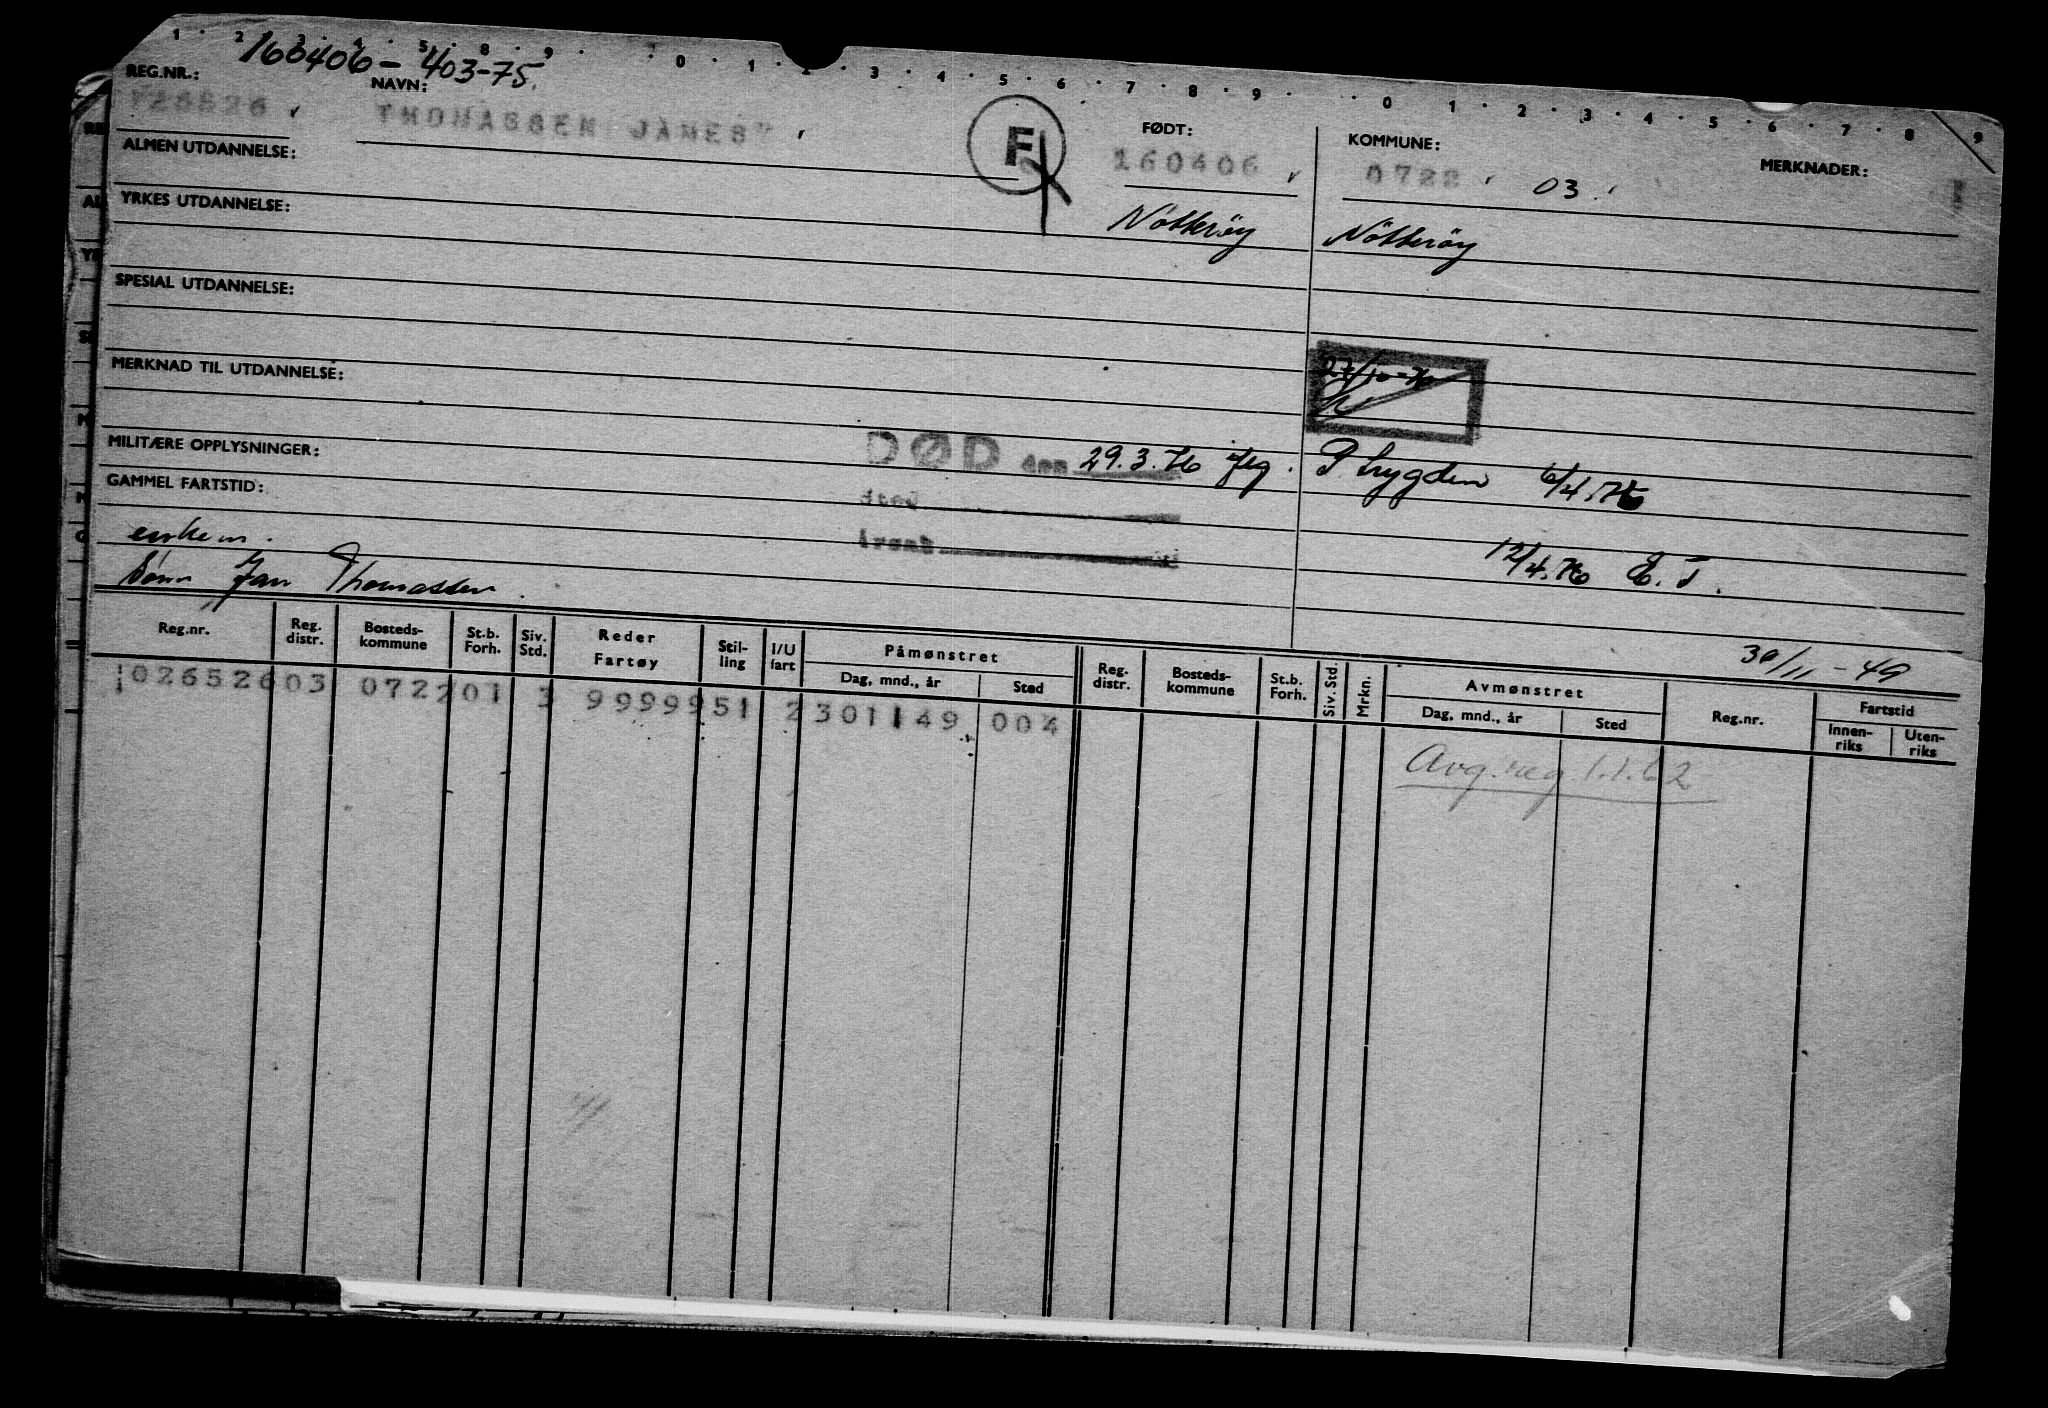 1 2 3 4 5 8 9 0 1 2 3 4 5 6 7 8 9 0 1 2 3 4 5 6 7 8 9
160406-403-75.
REG.NR.: NAVN: FØDT: KOMMUNE: MERKNADER:
THOMASSEN JAMES F 160406 0722 03
ALMEN UTDANNELSE:
YRKES UTDANNELSE: Nötteröy Nötteröy
SPESIAL UTDANNELSE:
MERKNAD TIL UTDANNELSE: 27/10-76
MILITÆRE OPPLYSNINGER: DØD den 29.3.76 P trygden 6/4.76
GAMMEL FARTSTID: sted
årsak
enken. 12/4.76 E.T.
Sönn Jan Thomassen.
30/11-49
Reg.nr. Reg. distr. Bosteds-kommune St.b. Forh. Siv. Std. Reder Fartøy Stil-ling I/U fart Påmønstret Dag, mnd., år Sted Reg. distr. Bosteds-kommune St.b. Forh. Siv. Std. Mrkn. Avmønstret Dag, mnd., år Sted Reg.nr. Fartstid Innen-riks Uten-riks
026526 03 0722 01 3 99999 51 2 301149 004
Avg. reg. 1.1.62